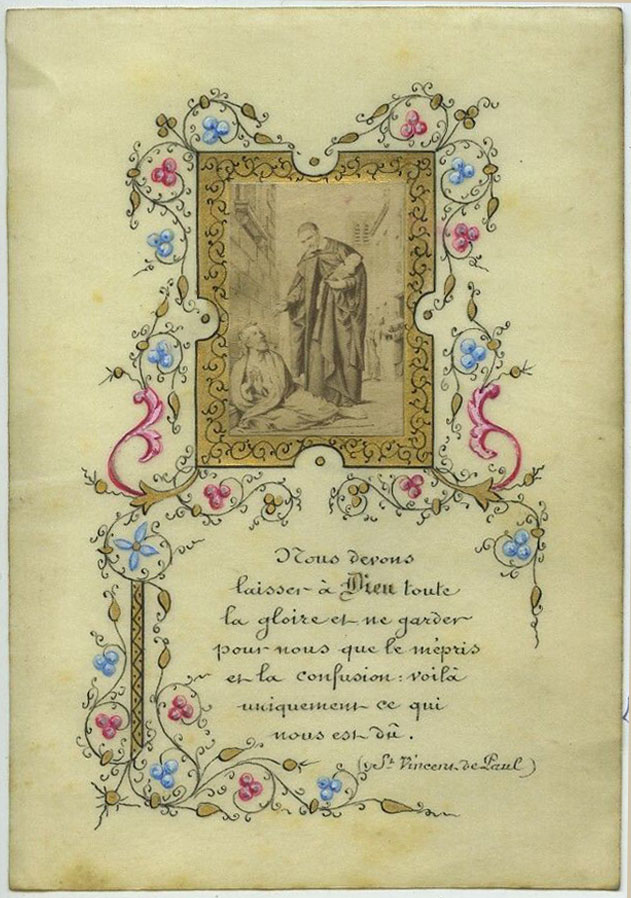 Nous devons
laisser à Dieu toute
la gloire et ne garder
pour nous que le mépris
et la confusion : voilà
uniquement ce qui
nous est dû.
(St Vincent de Paul)